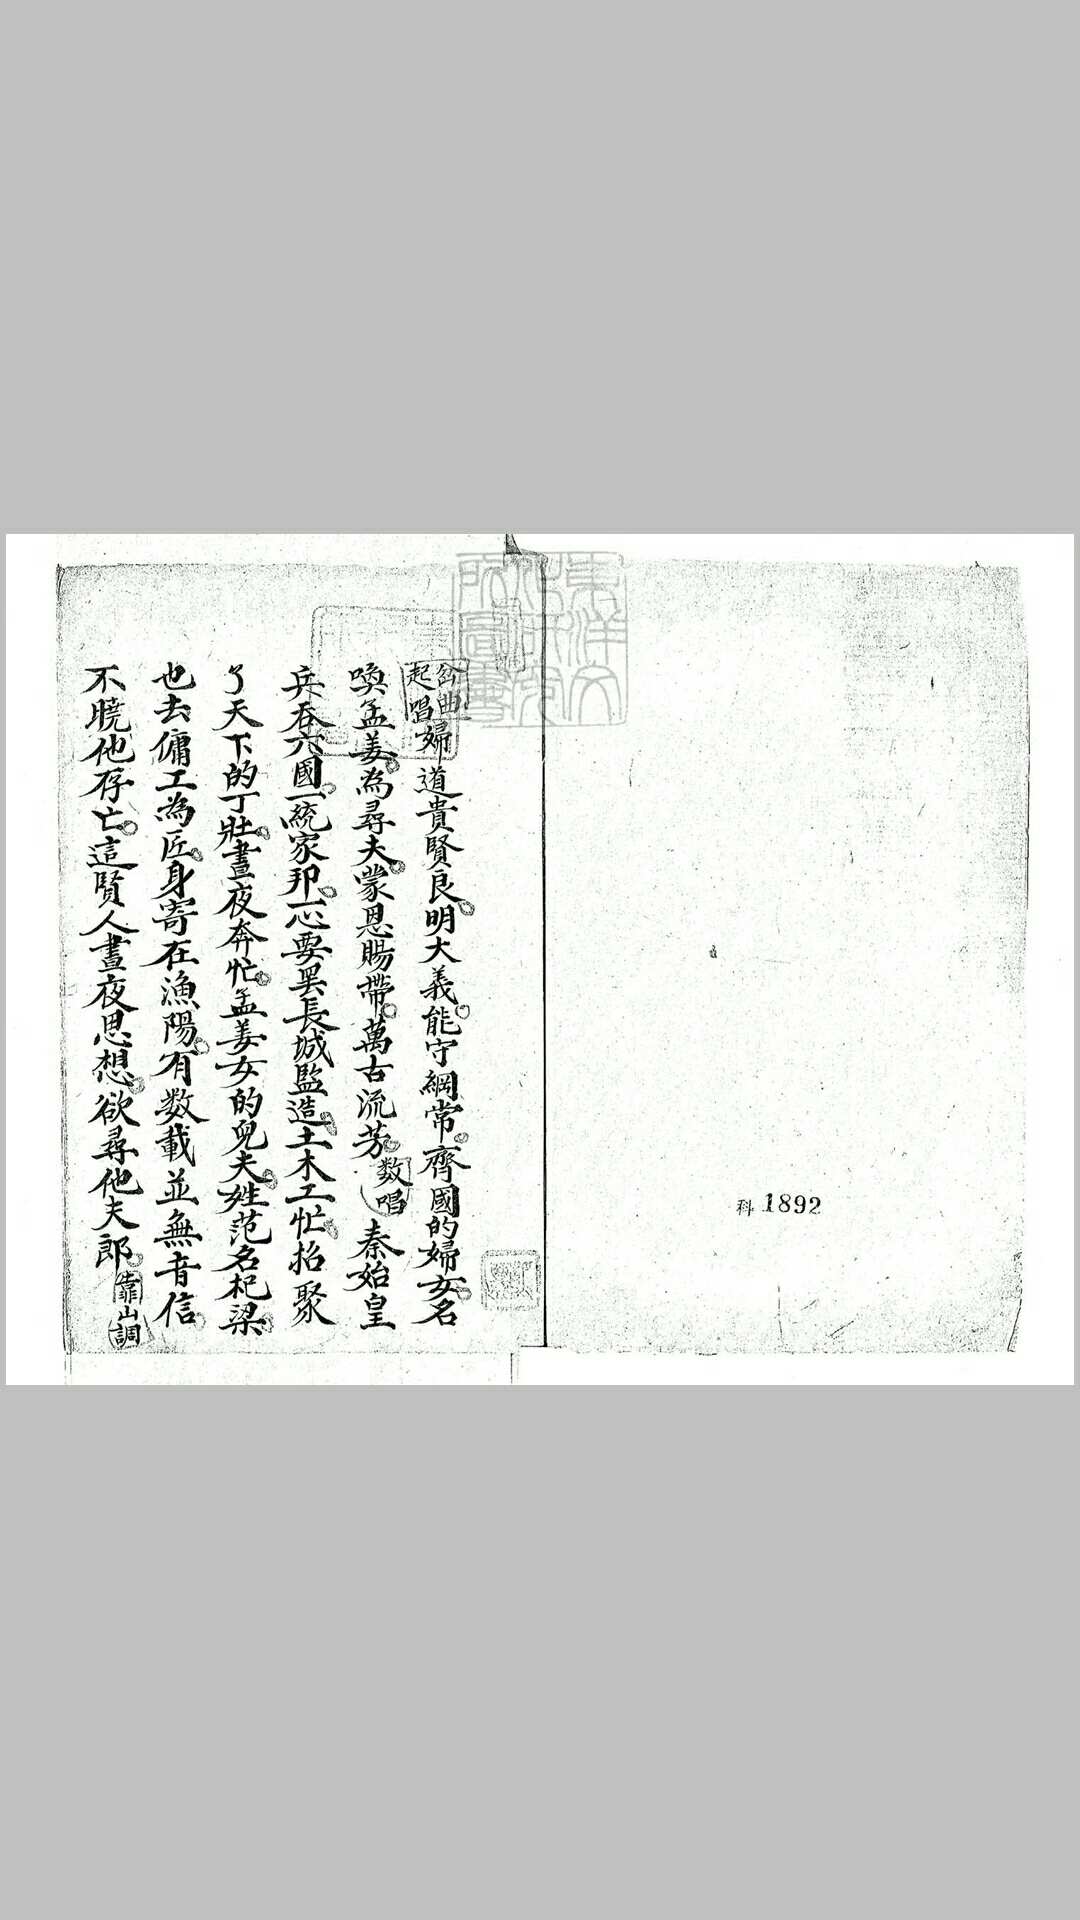 科 1892
岔曲起唱 婦道貴賢良。明大義。能守綱常。齊國的婦女。名
喚孟姜。為尋夫。蒙恩賜帶。萬古流芳。数唱 秦始皇
兵吞六國。一統家邦。一心要罢長城監造。土木工忙。招聚
了天下的丁壯。晝夜奔忙。孟姜女的兒夫。姓范名杞梁。
也去傭工為匠。身寄在漁陽。有数載並無音信。
不曉他存亡。這賢人晝夜思想。欲尋他夫郎。靠山調